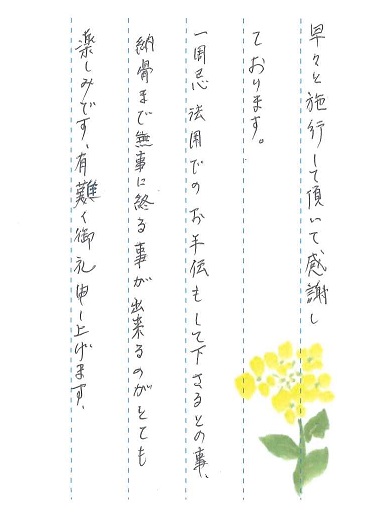 早々と施行して頂いて、感謝し
ております。
一周忌法用でのお手伝もして下さるとの事、
納骨まで無事に終る事が出来るのがとても
楽しみです、有難く御礼申し上げます、